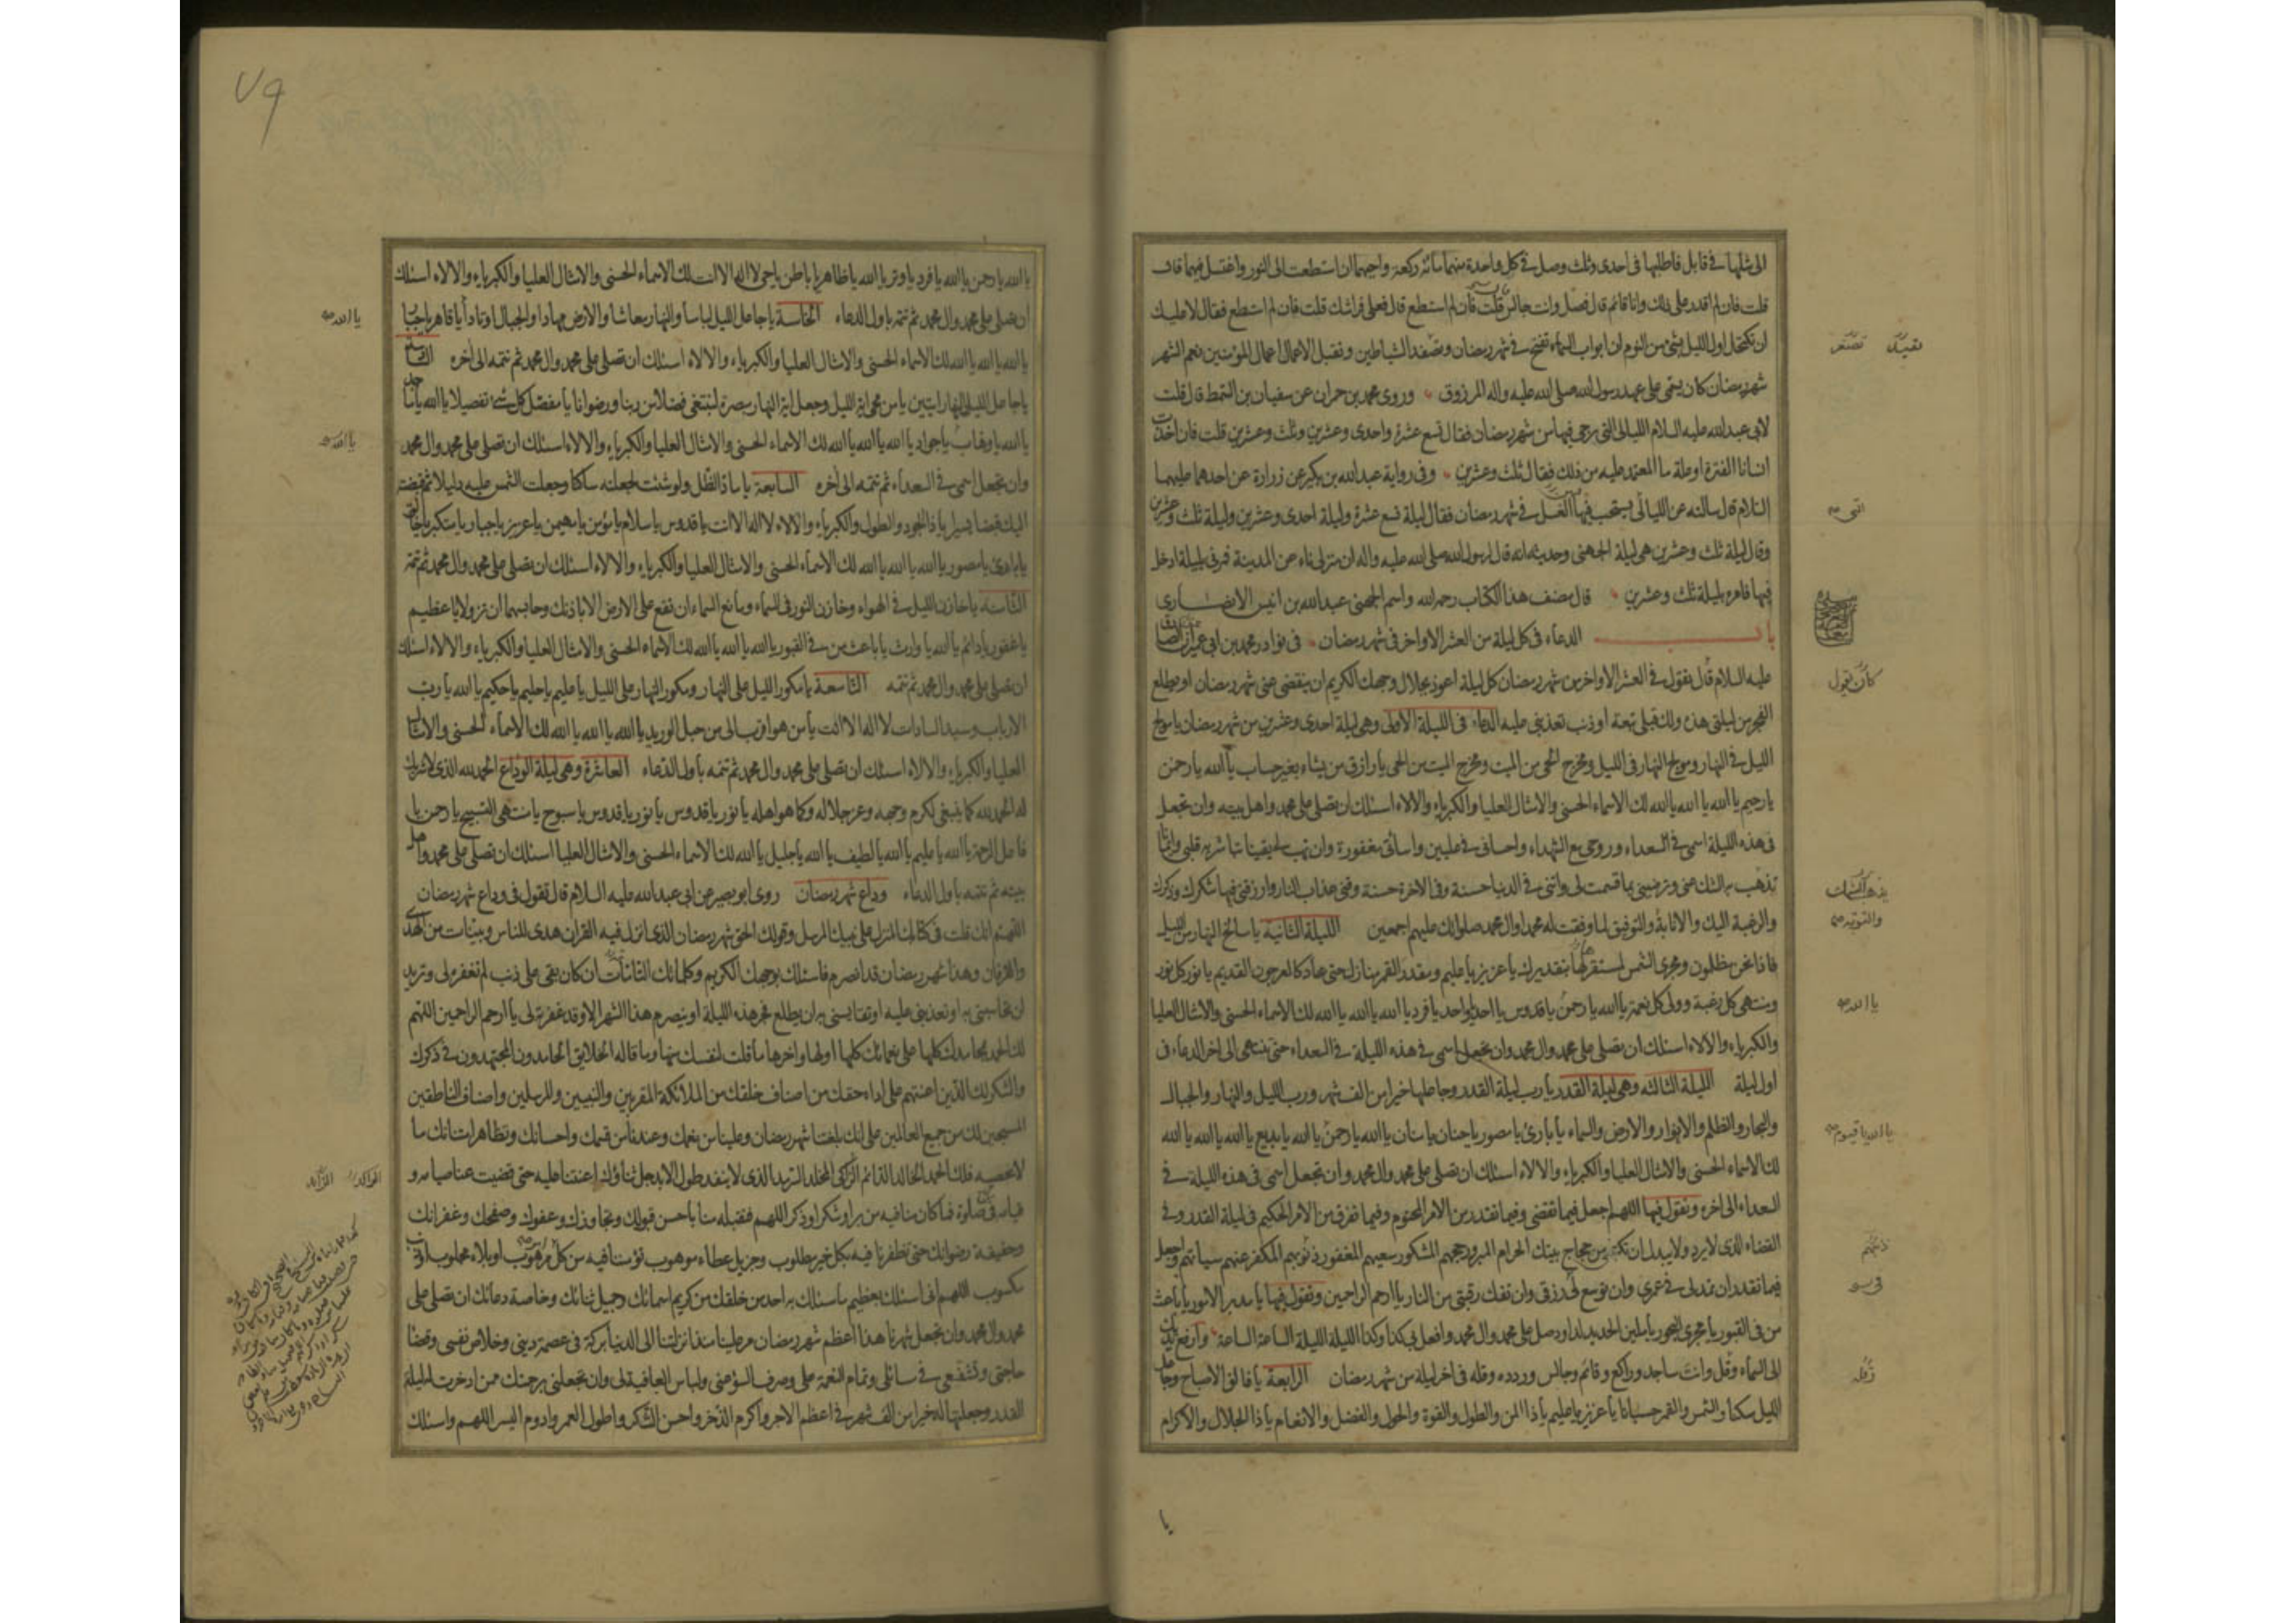 الى مثلها في قابل فاطلبها في احدى وثلث وصل في كل واحدة منهما مائة ركعة واحيهما ان استطعت الى النور واغتسل فيهما قال
قلت فان لم اقدر على ذلك وانا قائم قال فصل وانت جالس قلت فان لم استطع قال فعلى فراشك قلت فان لم استطع فقال لا عليك
ان تكتحل اول الليل بشئ من النوم ان ابواب السماء تفتح في شهر رمضان وتصفد الشياطين وتقبل الاعمال اعمال المؤمنين نعم الشهر
شهر رمضان كان يسمى على عهد رسول الله صلى الله عليه واله المرزوق وروى محمد بن حمران عن سفيان بن السمط قال قلت
لابي عبد الله عليه السلام الليالي التي يرجى فيها من شهر رمضان فقال تسع عشرة واحدى وعشرين وثلث وعشرين قلت فان اخذت
انسانا الفترة او علة ما المعتمد عليه من ذلك فقال ثلث وعشرين وفي رواية عبد الله بن بكير عن زرارة عن احدهما عليهما
السلام قال سالته عن الليالي يستحب فيها الغسل في شهر رمضان فقال ليلة تسع عشرة وليلة احدى وعشرين وليلة ثلث وعشرين
وقال ليلة ثلث وعشرين هي ليلة الجهني وحديثه انه قال لرسول الله صلى الله عليه واله ان منزلي ناء عن المدينة فمرني بليلة ادخل
فيها فامره بليلة ثلث وعشرين قال مصنف هذا الكتاب رحمه الله واسم الجهني عبد الله بن انيس الانصاري
باب الدعاء في كل ليلة من العشر الاواخر في شهر رمضان في نوادر محمد بن ابي عمير ان الصادق
عليه السلام قال يقول في العشر الاواخر من شهر رمضان كل ليلة اعوذ بجلال وجهك الكريم ان ينقضي عني شهر رمضان او يطلع
الفجر من ليلتي هذه ولك قبلي تبعة او ذنب تعذبني عليه الدعاء في الليلة الاولى وهي ليلة احدى وعشرين من شهر رمضان يا مولج
الليل في النهار ومولج النهار في الليل ومخرج الحي من الميت ومخرج الميت من الحي يا رازق من يشاء بغير حساب يا الله يا رحمن
يا رحيم يا الله يا الله يا الله لك الاسماء الحسنى والامثال العليا والكبرياء والالاء اسئلك ان تصلي على محمد واهل بيته وان تجعل
في هذه الليلة اسمي في السعداء وروحي مع الشهداء واحساني في عليين واسائتي مغفورة وان تهب لي يقينا تباشر به قلبي وايمانا
تذهب به الشك عني وترضيني بما قسمت لي واتني في الدنيا حسنة وفي الاخرة حسنة وقني عذاب النار وارزقني فيها شكرك وذكرك
والرغبة اليك والانابة والتوفيق لما وفقت له محمدا وال محمد صلواتك عليهم اجمعين الليلة الثانية يا سالخ النهار من الليل
فاذا نحن مظلمون ومجرى الشمس لمستقرها بتقديرك يا عزيز يا عليم ومقدر القمر منازل حتى عاد كالعرجون القديم يا نور كل نور
ومنتهى كل رغبة وولي كل نعمة يا الله يا رحمن يا قدوس يا احد يا واحد يا فرد يا الله يا الله يا الله لك الاسماء الحسنى والامثال العليا
والكبرياء والالاء اسئلك ان تصلي على محمد وال محمد وان تجعل اسمي في هذه الليلة في السعداء حتى ينتهى الى اخر الدعاء في
اول ليلة الليلة الثالثة وهي ليلة القدر يا رب ليلة القدر وجاعلها خيرا من الف شهر ورب الليل والنهار والجبال
والبحار والظلم والانوار والارض والسماء يا بارئ يا مصور يا حنان يا منان يا الله يا رحمن يا الله يا بديع يا الله يا الله يا الله
لك الاسماء الحسنى والامثال العليا والكبرياء والالاء اسئلك ان تصلي على محمد وال محمد وان تجعل اسمي في هذه الليلة في
السعداء الى اخره وتقول فيها اللهم اجعل فيما تقضي وفيما تقدر من الامر المحتوم وفيما تفرق من الامر الحكيم في ليلة القدر وفي
القضاء الذي لا يرد ولا يبدل ان تكتبني من حجاج بيتك الحرام المبرور حجهم المشكور سعيهم المغفور ذنوبهم المكفر عنهم سيئاتهم واجعل
فيما تقدر ان تمد لي في عمري وان توسع لي في رزقي وان تفك رقبتي من النار يا ارحم الراحمين وتقول فيها يا مدبر الامور يا باعث
من في القبور يا مجرى البحور يا ملين الحديد لداود صل على محمد وال محمد وافعل بي كذا وكذا الليلة الليلة الساعة الساعة وارفع يديك
الى السماء وقل وانت ساجد وراكع وقائم وجالس وردده وقله في اخر ليلة من شهر رمضان الرابعة يا فالق الاصباح وجاعل
الليل سكنا والشمس والقمر حسبانا يا عزيز يا عليم يا ذا المن والطول والقوة والحول والفضل والانعام يا ذا الجلال والاكرام
كان يقول
يا الله
يا الله يا قيوم
يا
٧٩
يا الله يا رحمن يا الله يا فرد يا وتر يا الله يا ظاهر يا باطن يا حي لا اله الا انت لك الاسماء الحسنى والامثال العليا والكبرياء والالاء اسئلك
ان تصلي على محمد وال محمد ثم تتمه باول الدعاء الخامسة يا جاعل الليل لباسا والنهار معاشا والارض مهادا والجبال اوتادا يا قاهر يا جبار
يا الله يا الله يا الله لك الاسماء الحسنى والامثال العليا والكبرياء والالاء اسئلك ان تصلي على محمد وال محمد ثم تتمه الى اخره السادسة
يا جاعل الليل والنهار ايتين يا من محى اية الليل وجعل اية النهار مبصرة لتبتغي فضلا من ربنا ورضوانا يا مفصل كل شئ تفصيلا يا الله يا ماجد
يا الله يا وهاب يا جواد يا الله يا الله يا الله لك الاسماء الحسنى والامثال العليا والكبرياء والالاء اسئلك ان تصلي على محمد وال محمد
وان تجعل اسمي في السعداء ثم تتمه الى اخره السابعة يا ماد الظل ولو شئت لجعلته ساكنا وجعلت الشمس عليه دليلا ثم قبضته
اليك قبضا يسيرا يا ذا الجود والطول والكبرياء والالاء لا اله الا انت يا قدوس يا سلام يا مؤمن يا مهيمن يا عزيز يا جبار يا متكبر يا خالق
يا بارئ يا مصور يا الله يا الله يا الله لك الاسماء الحسنى والامثال العليا والكبرياء والالاء اسئلك ان تصلي على محمد وال محمد ثم تتمه
الثامنة يا خازن الليل في الهواء وخازن النور في السماء ومانع السماء ان تقع على الارض الا باذنك وحابسهما ان تزولا يا عظيم
يا غفور يا دائم يا الله يا وارث يا باعث من في القبور يا الله يا الله يا الله لك الاسماء الحسنى والامثال العليا والكبرياء والالاء اسئلك
ان تصلي على محمد وال محمد ثم تتمه التاسعة يا مكور الليل على النهار ومكور النهار على الليل يا عليم يا حليم يا حكيم يا الله يا رب
الارباب وسيد السادات لا اله الا انت يا من هو اقرب الي من حبل الوريد يا الله يا الله يا الله لك الاسماء الحسنى والامثال
العليا والكبرياء والالاء اسئلك ان تصلي على محمد وال محمد ثم تتمه باول الدعاء العاشرة وهي ليلة الوداع الحمد لله الذي لا شريك
له الحمد لله كما ينبغي لكرم وجهه وعز جلاله وكما هو اهله يا نور يا قدوس يا نور يا قدوس يا سبوح يا منتهى التسبيح يا رحمن يا
فاعل الرحمة يا الله يا عليم يا الله يا لطيف يا الله يا جليل يا الله لك الاسماء الحسنى والامثال العليا اسئلك ان تصلي على محمد واهل
بيته ثم تتمه باول الدعاء وداع شهر رمضان روى ابو بصير عن ابي عبد الله عليه السلام قال تقول في وداع شهر رمضان
اللهم انك قلت في كتابك المنزل على نبيك المرسل وقولك الحق شهر رمضان الذي انزل فيه القران هدى للناس وبينات من الهدى
والفرقان وهذا شهر رمضان قد انصرم فاسئلك بوجهك الكريم وكلماتك التامات ان كان بقي علي ذنب لم تغفره لي وتريد
ان تحاسبني به او تعذبني عليه او تقايسني به ان يطلع فجر هذه الليلة او ينصرم هذا الشهر الا وقد غفرته لي يا ارحم الراحمين اللهم
لك الحمد بمحامدك كلها على نعمائك كلها اولها واخرها ما قلت لنفسك منها وما قاله الخلايق الحامدون المجتهدون في ذكرك
والشكر لك الذين اعنتهم على اداء حقك من اصناف خلقك من الملائكة المقربين والنبيين والمرسلين واصناف الناطقين
المسبحين لك من جميع العالمين على انك بلغتنا شهر رمضان وعلينا من نعمك وعندنا من قسمك واحسانك وتظاهر امتنانك ما
لا نحصيه فلك الحمد الخالد الدائم الزاكي المخلد السرمد الذي لا ينفد طول الابد جل ثناؤك اعنتنا عليه حتى قضيت عنا صيامه و
قيامه في صلوة فما كان منا فيه من بر او شكر او ذكر اللهم فتقبله منا باحسن قبولك وتجاوزك وعفوك وصفحك وغفرانك
وحقيقة رضوانك حتى تظفرنا فيه بكل خير مطلوب وجزيل عطاء موهوب تؤمنا فيه من كل مرهوب او بلاء مجلوب او ذنب
مكسوب اللهم اني اسئلك بعظيم ما سئلك به احد من خلقك من كريم اسمائك وجميل ثنائك وخاصة دعائك ان تصلي على
محمد وال محمد وان تجعل شهرنا هذا اعظم شهر رمضان مر علينا منذ انزلتنا الى الدنيا بركة في عصمة ديني وخلاص نفسي وقضاء
حاجتي وتشفعي في مسائلي وتمام النعمة علي وصرف السوء عني ولباس العافية لي وان تجعلني برحمتك ممن ادخرت له ليلة
القدر وجعلتها له خيرا من الف شهر في اعظم الاجر واكرم الذخر واحسن الشكر واطول العمر وادوم اليسر اللهم واسئلك
يا الله
يا الله